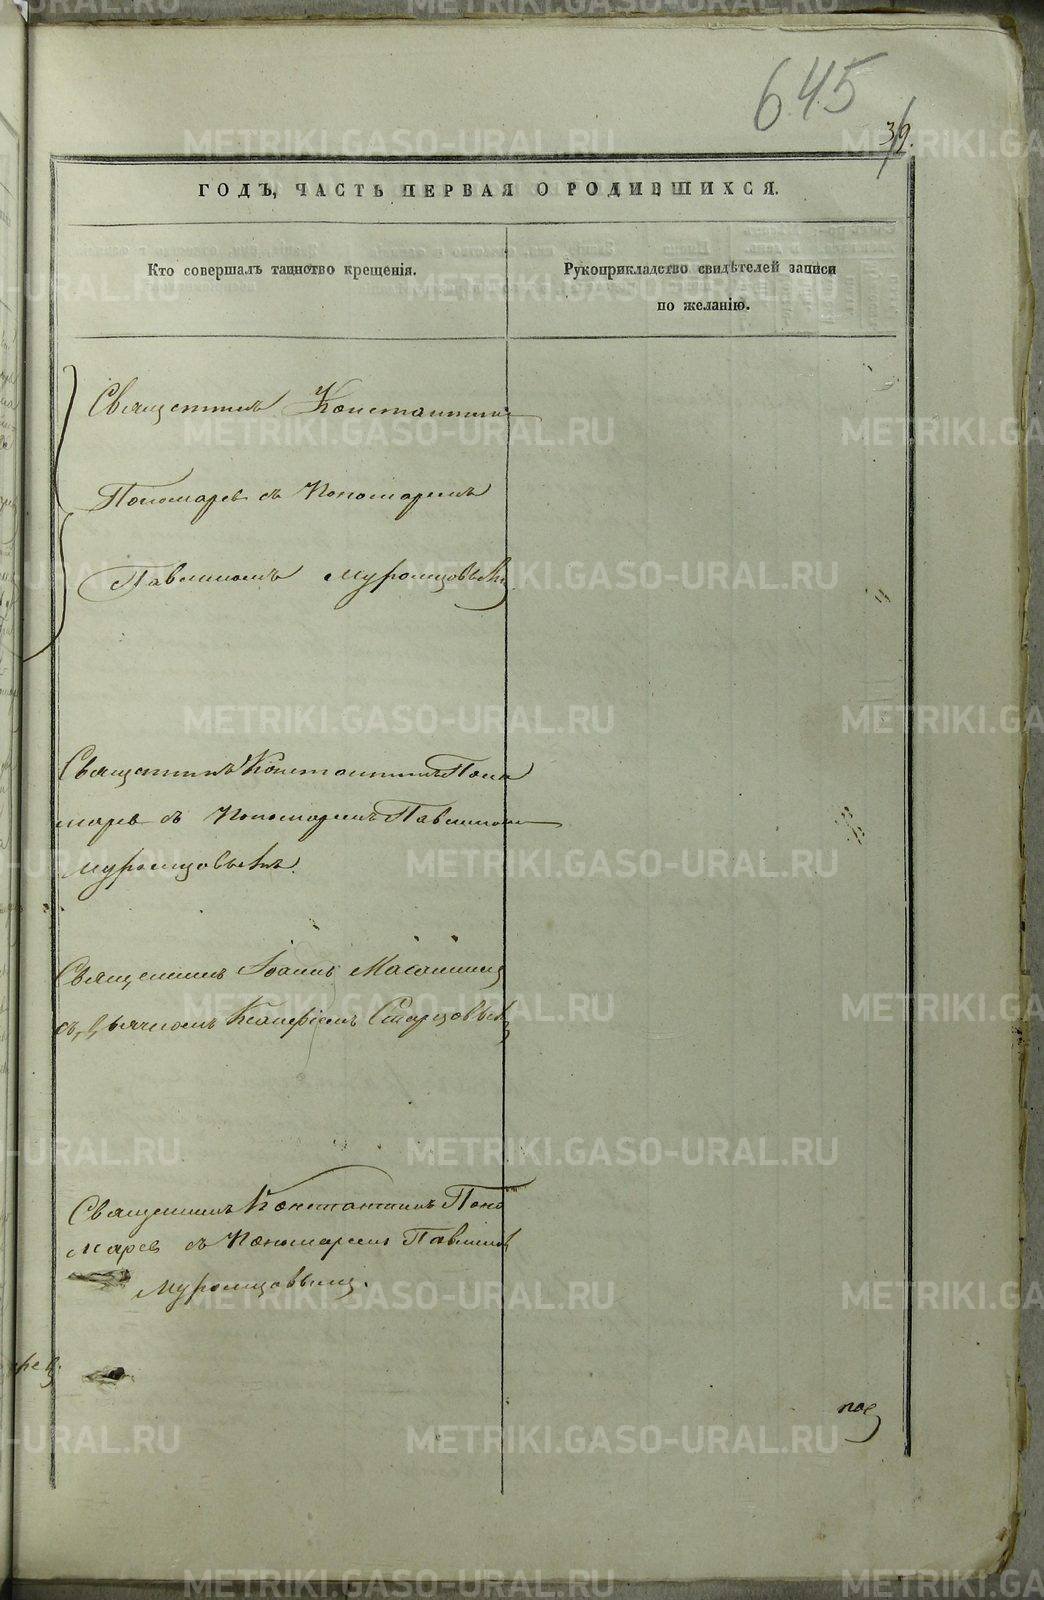 645
39.
ГОДЪ, ЧАСТЬ ПЕРВАЯ О РОДИВШИХСЯ.
Кто совершалъ таинство крещенія.
Рукоприкладство свидѣтелей записи
по желанію.
Священникъ Константинъ
Пономарев съ Пономаремъ
Павлиномъ Муромцовымъ
Священникъ Константинъ Поно
марев съ Пономаремъ Павлином
Муромцовымъ.
Священникъ Іоаннъ
съ Дьячкомъ Старцовымъ
Священникъ Константинъ Поно
марев съ Пономаремъ Павлином
Муромцовымъ.
METRIKI.GASO-URAL.RU